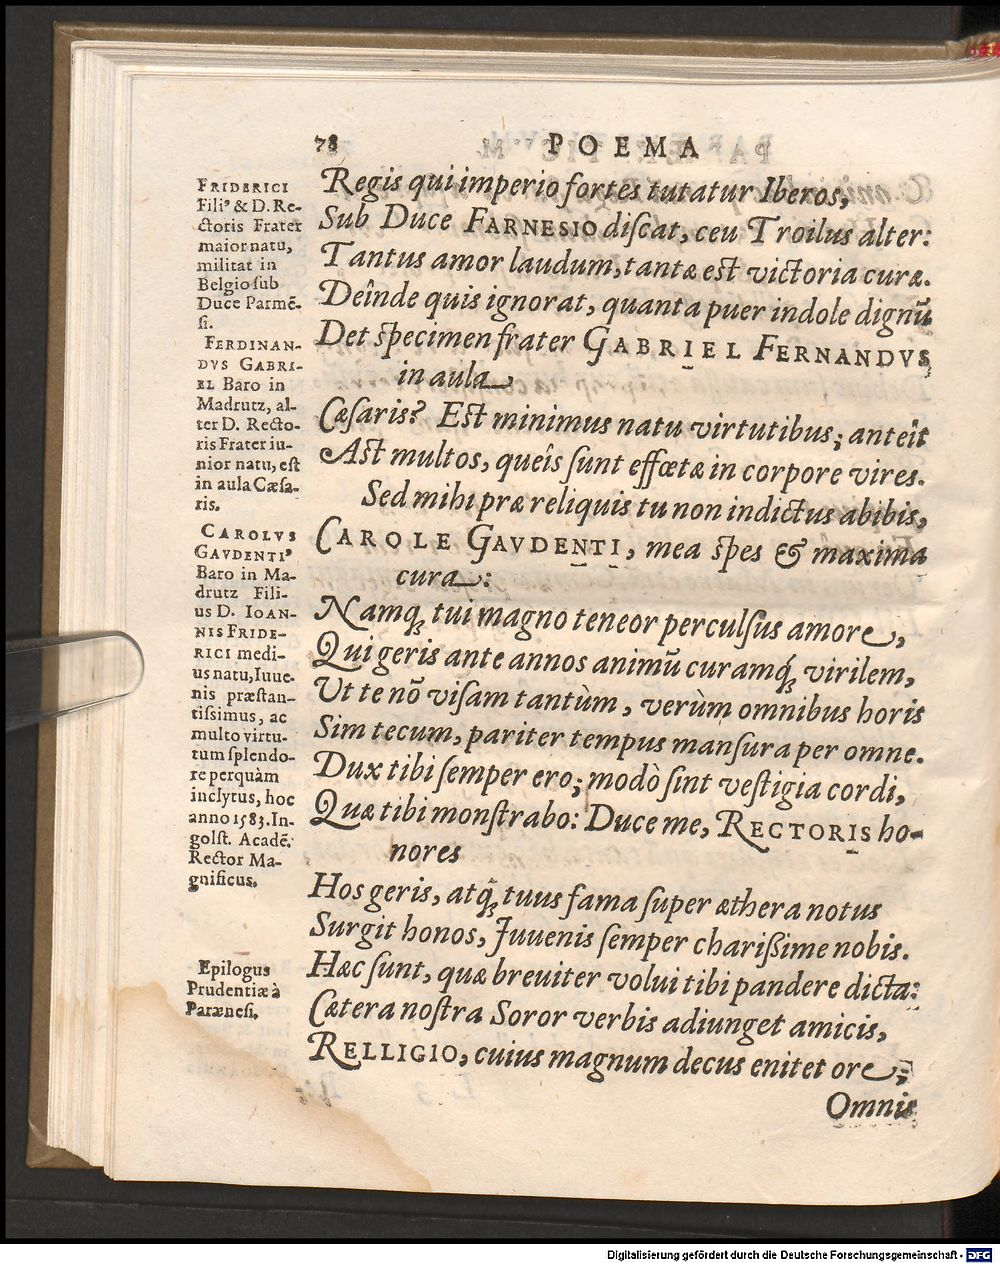 78 POEMA
FRIDERICI
Fili⁹ & D. Re-
ctoris Frater
maior natu,
militat in
Belgio sub
Duce Parmẽ-
si.
FERDINAN-
DVS GABRI-
EL Baro in
Madrutz, al-
ter D. Recto-
ris Frater iu-
nior natu, est
in aula Cæsa-
ris.
CAROLVS
GAVDENTI⁹
Baro in Ma-
drutz Fili-
us D. IOAN-
NIS FRIDE-
RICI medi-
us natu, Iuue-
nis præstan-
tissimus, ac
multo virtu-
tum splendo-
re perquàm
inclytus, hoc
anno 1583. In-
golst. Acadẽ.
Rector Ma-
gnificus.
Epilogus
Prudentiæ à
Parænesi.
Regis qui imperio fortes tutatur Iberos,
Sub Duce FARNESIO discat, ceu Troilus alter:
Tantus amor laudum, tantæ est victoria curæ.
Deînde quis ignorat, quanta puer indole dignũ
Det specimen frater GABRIEL FERNANDVS
in aula
Cæsaris? Est minimus natu virtutibus; anteît
Ast multos, queîs sunt effœtæ in corpore vires.
Sed mihi præ reliquis tu non indictus abibis,
CAROLE GAVDENTI, mea spes & maxima
cura:
Namq; tui magno teneor perculsus amore,
Qui geris ante annos animũ curamq́; virilem,
Ut te nõ visam tantùm, verùm omnibus horis
Sim tecum, pariter tempus mansura per omne.
Dux tibi semper ero; modò sint vestigia cordi,
Quæ tibi monstrabo: Duce me, RECTORIS ho-
nores
Hos geris, atq́; tuus fama super æthera notus
Surgit honos, Juuenis semper charißime nobis.
Hæc sunt, quæ breuiter volui tibi pandere dicta:
Cætera nostra Soror verbis adiunget amicis,
RELLIGIO, cuius magnum decus enitet ore;
Omnis
Digitalisierung gefördert durch die Deutsche Forschungsgemeinschaft - DFG